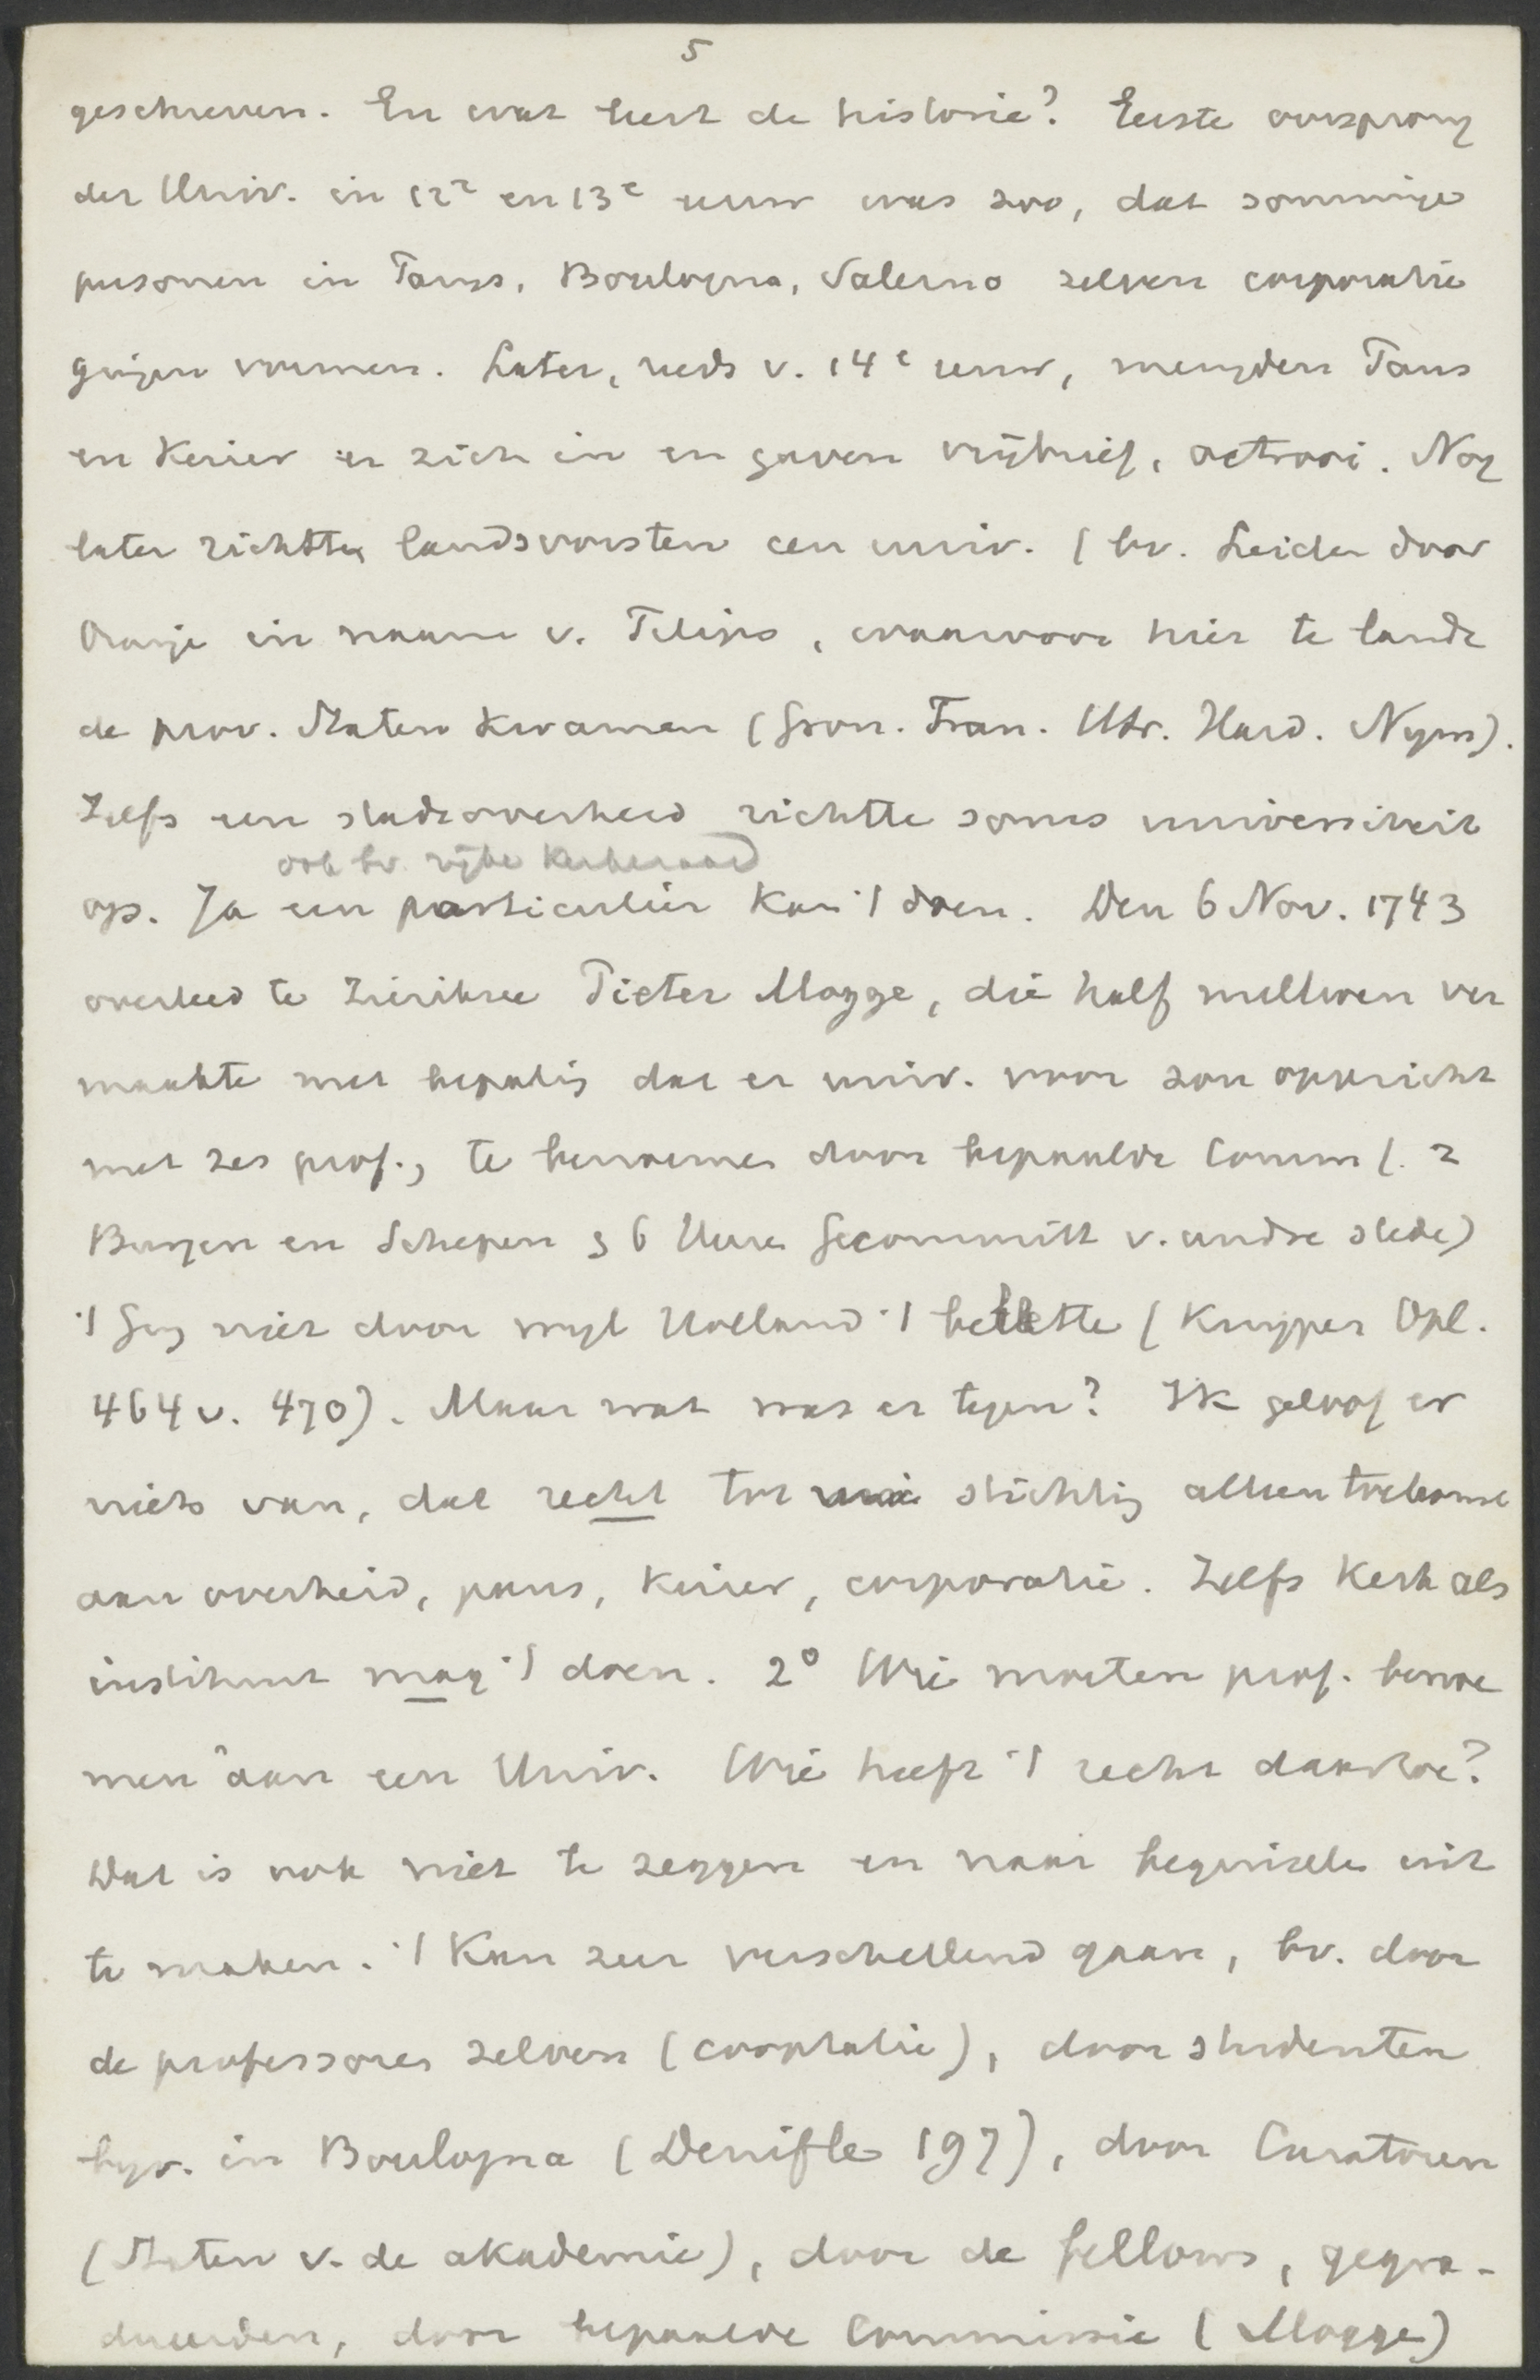 5
geschreven. En wat leert de historie? Eerste oorsprong
der Univ. in 12e en 13e eeuw was zoo, dat sommige
personen in Parijs, Boulogna, Salerno zelven corporatie
gingen vormen. Later, reeds v. 14e eeuw, mengden Paus
en Keizer er zich in en gaven vrijbrief, octrooi. Nog
later richtten landsvorsten een univ. (bv. Leiden door
Oranje in naam v. Filips, waarvoor hier te lande
de prov. Staten kwamen (Gron. Fran. Utr. Hard. Nijm).
Zelfs een stadsoverheid richtte soms universiteit
ook bv. vrije Kerkeraad
op. Ja een particulier kan 't doen. Den 6 Nov. 1743
overleed te Zierikzee Pieter Mogge, die half millioen ver
maakte met bepaling dat er univ. voor zou opgericht
met zes prof., te benoemen door bepaalde Comm (. 2
Burgem en Schepen 36 Heeren Gecommitt v. andre stede)
't Ging niet door wijl Holland 't belette (Kuyper Opl.
464 v. 470). Maar wat was er tegen? Ik geloof er
niets van, dat recht tot stichting alleen toekomt
aan overheid, paus, keizer, corporatie. Zelfs Kerk als
instituut mag 't doen. 2° Wie moeten prof. benoe
men aan een Univ. Wie heeft 't recht daartoe?
Dat is ook niet te zeggen en naar beginselen uit
te maken. 't Kan zeer verschillend gaan, bv. door
de professoren zelven (cooptatie), door studenten
bijv. in Boulogna (Denifle 197), door Curatoren
(Staten v. de akademie), door de fellows, gegra-
dueerden, door bepaalde Commissie (Mogge)